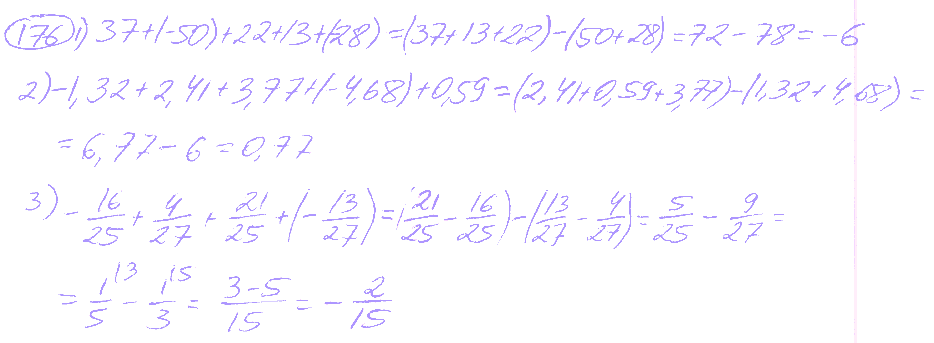 176 1) 37+(-50)+22+13+(-28)=(37+13+22)-(50+28)=72-78=-6
2) -1,32+2,41+3,77+(-4,68)+0,59=(2,41+0,59+3,77)-(1,32+4,68)=
=6,77-6=0,77
3) -16/25+4/27+21/25+(-13/27)=(21/25-16/25)-(13/27-4/27)=5/25-9/27=
=1/5^{13}-1/3^{15}=3-5/15=-2/15